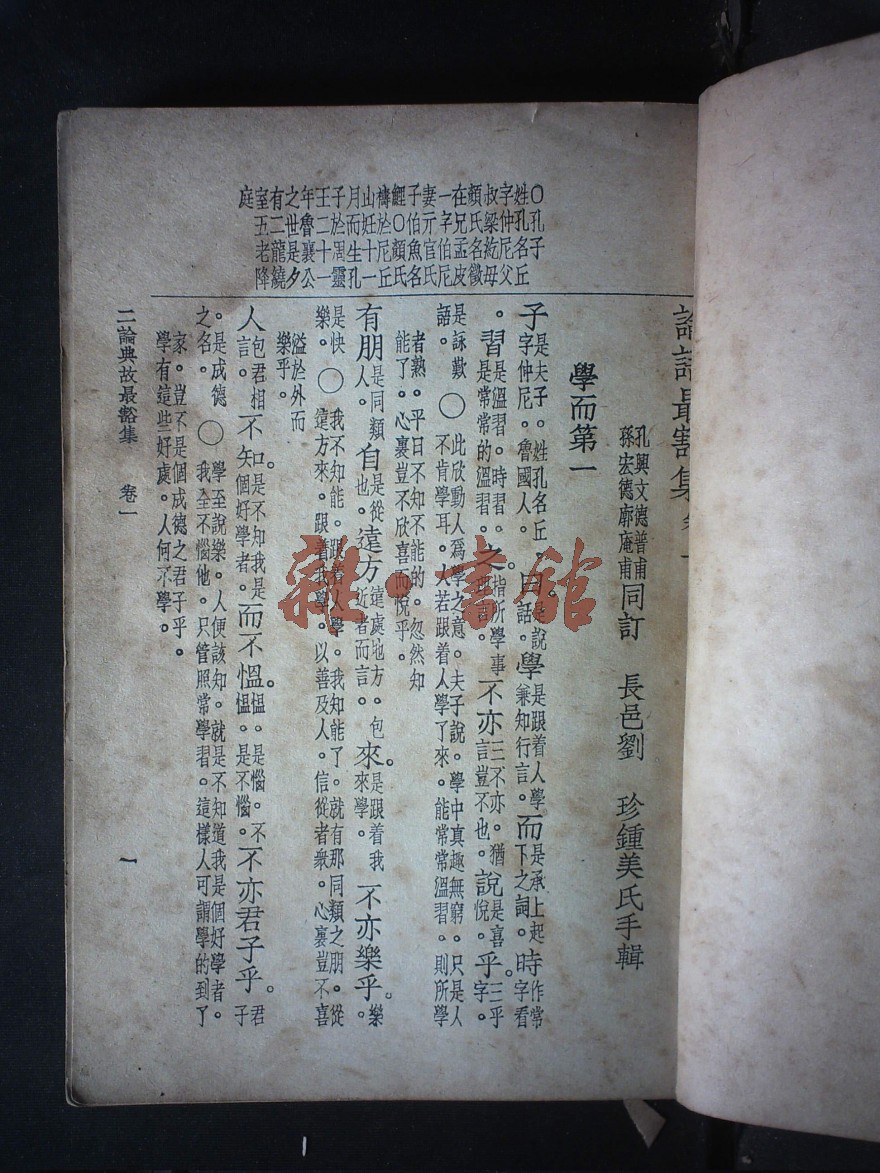 ○孔子
姓孔名丘
字仲尼父
叔梁紇母
顏氏名徵
在兄孟皮
一字伯尼
妻亓官氏
子伯魚名
鯉○顏氏
禱於尼丘
山妊十一
月而生孔
子於周靈
王二十一
年魯襄公
之世是夕
有二龍繞
室五老降
庭
論語最豁集卷一
孔興文德普甫
孫宏德廓庵甫
同訂 長邑劉 珍鍾美氏手輯
學而第一
子是夫子。姓孔名丘。字仲尼。魯國人。曰是說話。學是跟着人學。兼知行言。而是承上起下之詞。時作常字看
。習是溫習。時習。是常常的溫習。之指所學事理言。不亦三不亦。猶言豈不也。說是喜悅。乎三乎字。
是詠歎語。○此欣動人爲學之意。夫子說。學中真趣無窮。只是人不肯學耳。人若跟着人學了來。能常常溫習。則所學
者熟。平日不知不能的。忽然知能了。心裏豈不欣喜而悅乎。
有朋是同類人。自是從也。遠方遠處地方。包近者而言。來是跟着我來學。不亦樂乎。樂
是快樂。○我不知能。跟着人學。我知能了。就有那同類之朋。從遠方來。跟着我學。以善及人。信從者衆。心裏豈不喜
溢於外而樂乎。
人包君相言。不知是不知我是個好學者。而不慍慍。是惱。不慍。是不惱。不亦君子乎。君子
。是成德之名。○學至說樂。人便該知。就是不知道我是個好學者。我全不惱他。只管照常學習。這樣人可謂學的到了
家。豈不是個成德之君子乎。學有這些好處。人何不學。
二論典故最豁集 卷一
一
雜·書館